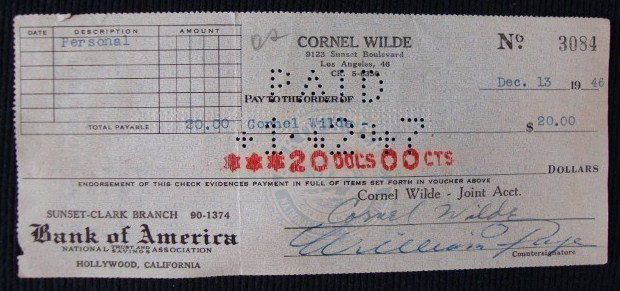 DATE DESCRIPTION AMOUNT
Personal
TOTAL PAYABLE 20.00
CORNEL WILDE
9123 Sunset Boulevard
Los Angeles, 46
No 3084
Dec. 13 19 46
PAID
PAY TO THE ORDER OF
Cornel Wilde - $ 20.00
***20 DOLS 00 CTS
DOLLARS
ENDORSEMENT OF THIS CHECK EVIDENCES PAYMENT IN FULL OF ITEMS SET FORTH IN VOUCHER ABOVE
Cornel Wilde - Joint Acct.
SUNSET-CLARK BRANCH 90-1374
Bank of America
NATIONAL TRUST AND SAVINGS ASSOCIATION
HOLLYWOOD, CALIFORNIA
Cornel Wilde
William
Countersignature